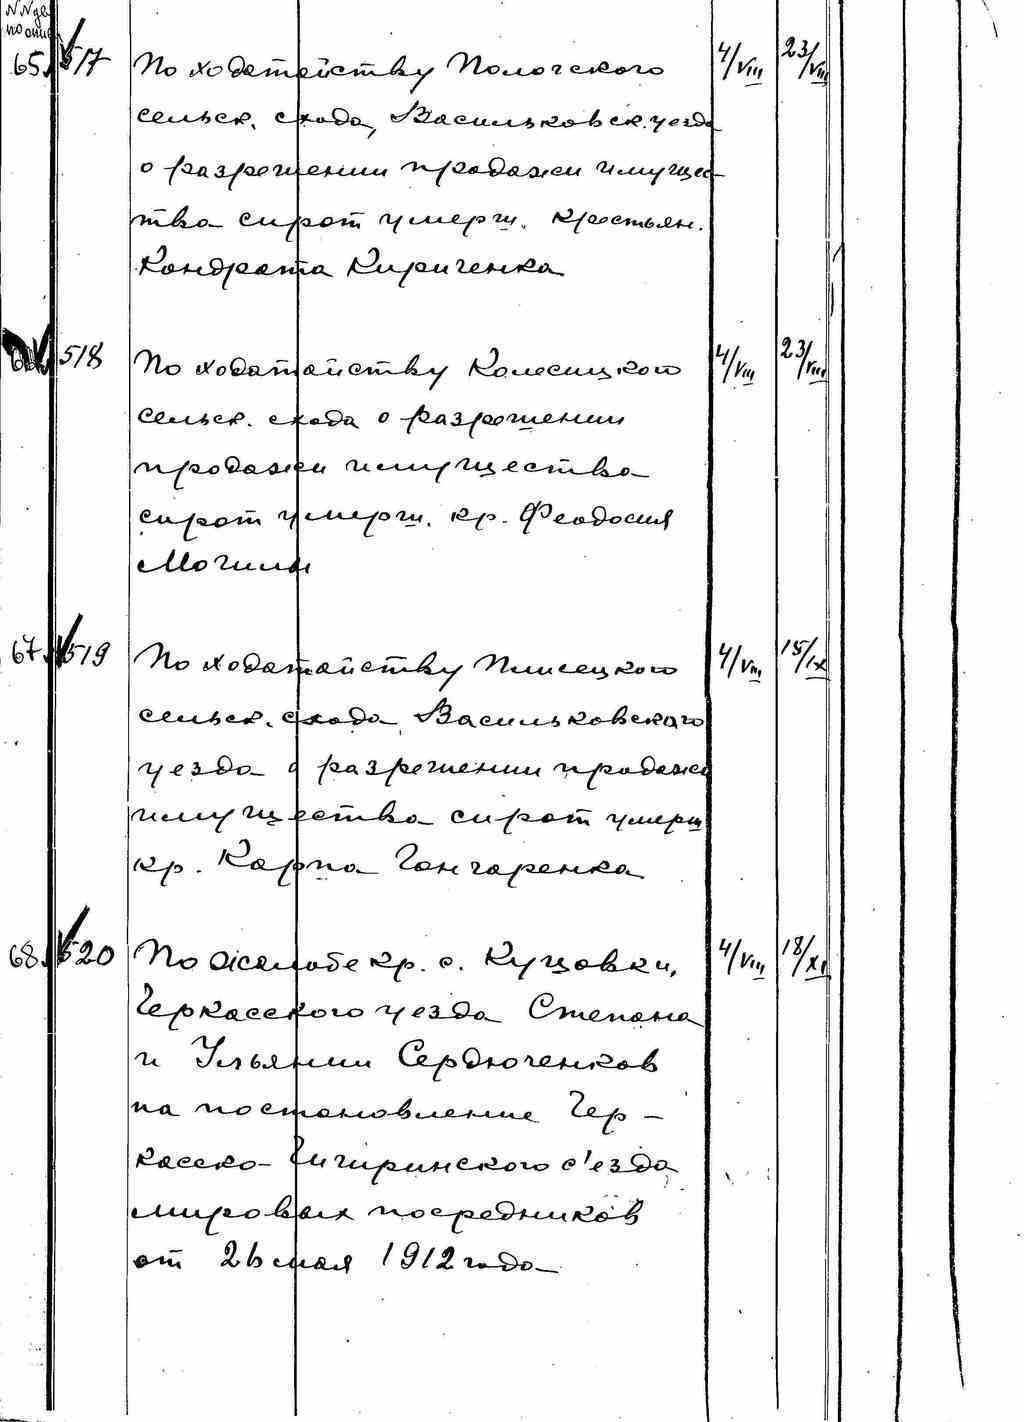 NN дел
по опис
65. 517 По ходатайству Пологского 4/VIII 23/VIII
сельск. схода, Васильковск. уезда
о разрешении продажи имущес-
тва сирот умерш. крестьян.
Кондрата Кириченка
518 По ходатайству Колесицкого 4/VIII 23/VIII
сельск. схода о разрешении
продажи имущества
сирот умерш. кр. Феодосия
Могилы
67. 519 По ходатайству Плисецкого 4/VIII 15/IX
сельск. схода Васильковского
уезда о разрешении продажи
имущества сирот умерш
кр. Карпа Гончаренка
68. 520 По жалобе кр. с. Куцовки, 4/VIII 18/XI
Черкасского уезда Степана
и Ульянии Сердюченков
на постановление Чер-
касско-Чигиринского с'езда
мировых посредников
от 26 мая 1912 года